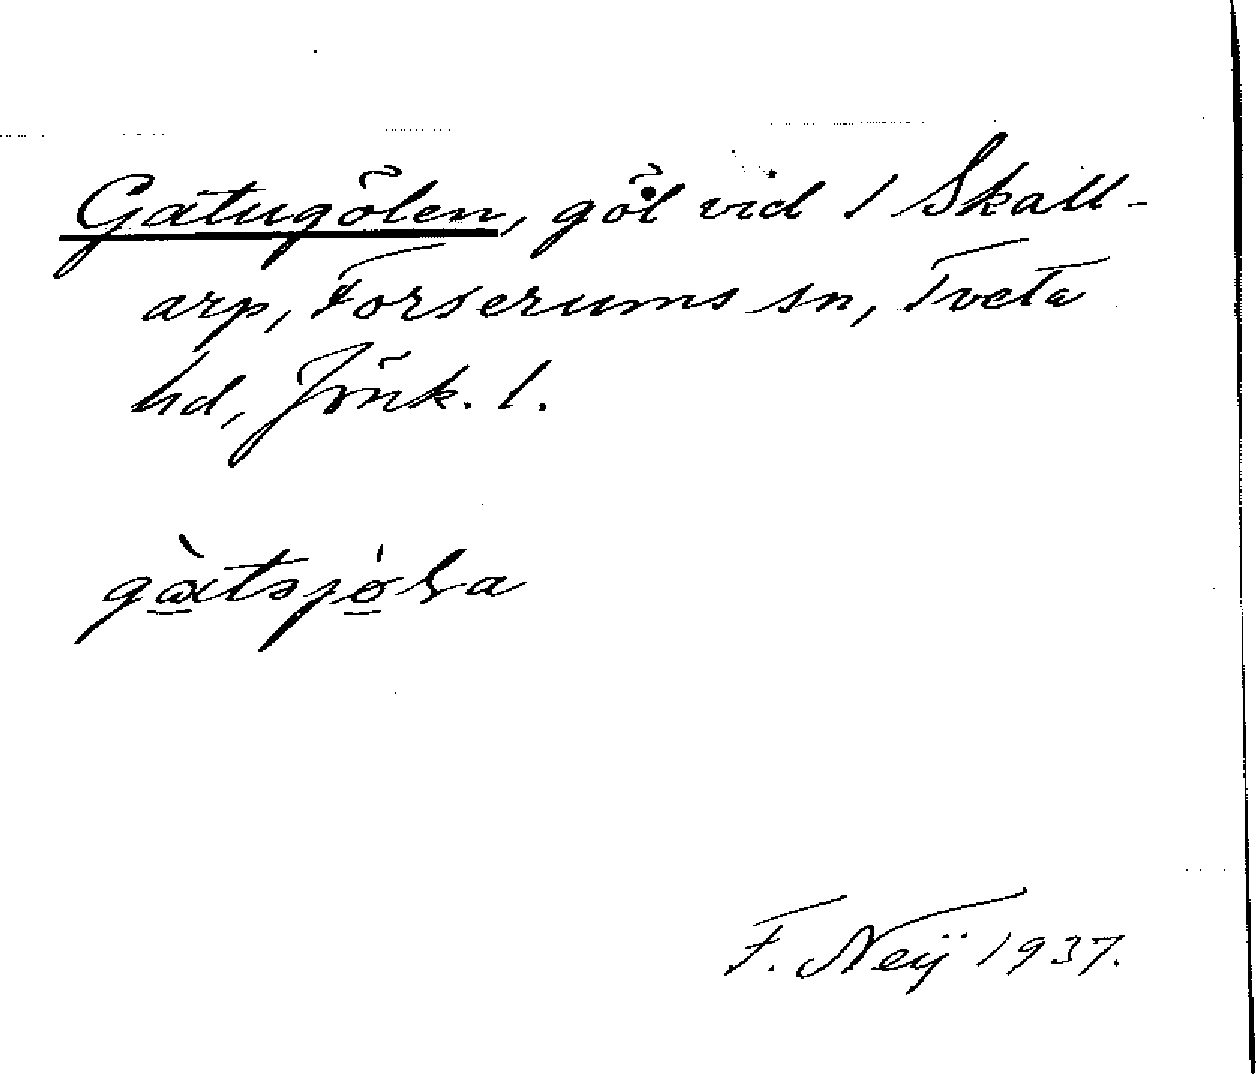 Gatugölen, göl vid 1 Skall-
arp, Forserums sn, Tveta
hd, Jönk. l.
F. Neij 1937.